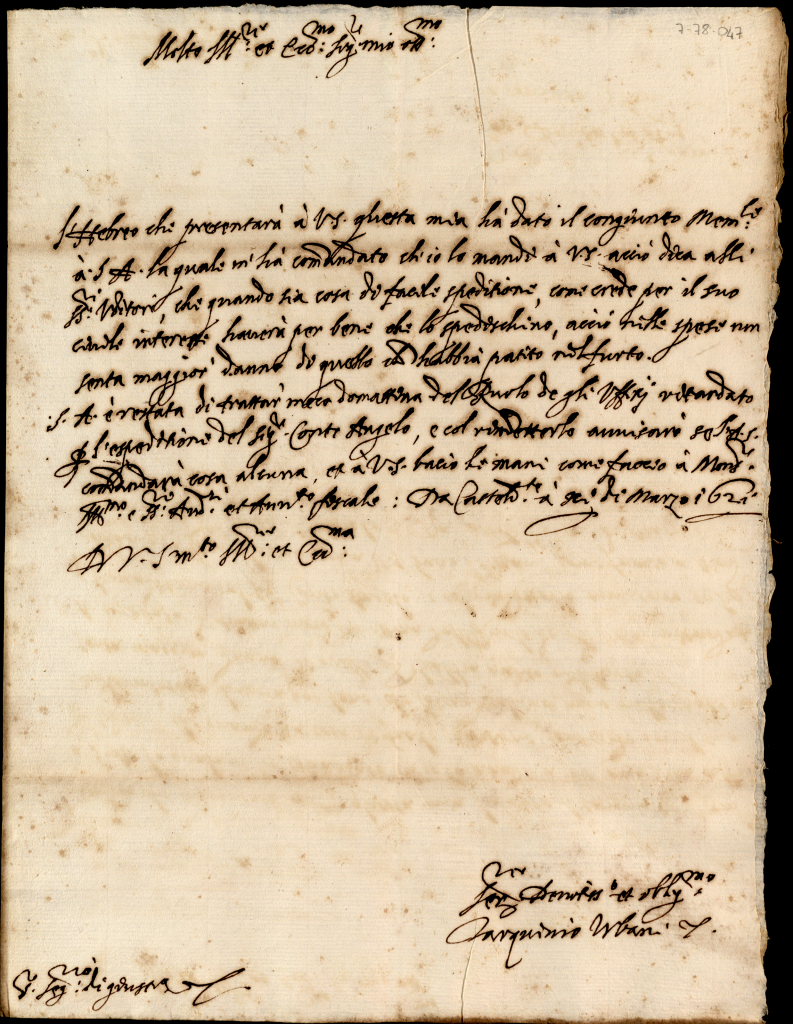 7-78-047
Molto Ill.re et Ecc.mo Sig.re mio oss.mo
L'Hebreo che presentarà à V.S. questa mia hà dato il congiunto Mem.le
à S. A. la quale m'hà comandato ch'io lo mandi à V.S. acciò dica alli
SS.ri Uditori, che quando sia cosa di facile speditione, come crede per il suo
civile interesse, haverà per bene che lo spedischino, acciò nelle spese non
senta maggior danno di quello ch'habbia patito nel furto.
S. A. è restata di trattar meco domattina del Ruolo de gli Uffitij ritardato
p l'espeditione del Sig.r Conte Angelo, e col rimetterlo avvisarò se
comandarà cosa alcuna, et à V.S. bacio le mani come faccio à Mons.r
Ill.mo e SS.ri Aud.ri et Avv.to fiscale: Da Casteld.te à sei di Marzo 1621
D V. S. m.to Ill.re et Ecc.ma
Ser.re Devotiss.o et obblig.mo
Tarquinio Urbani